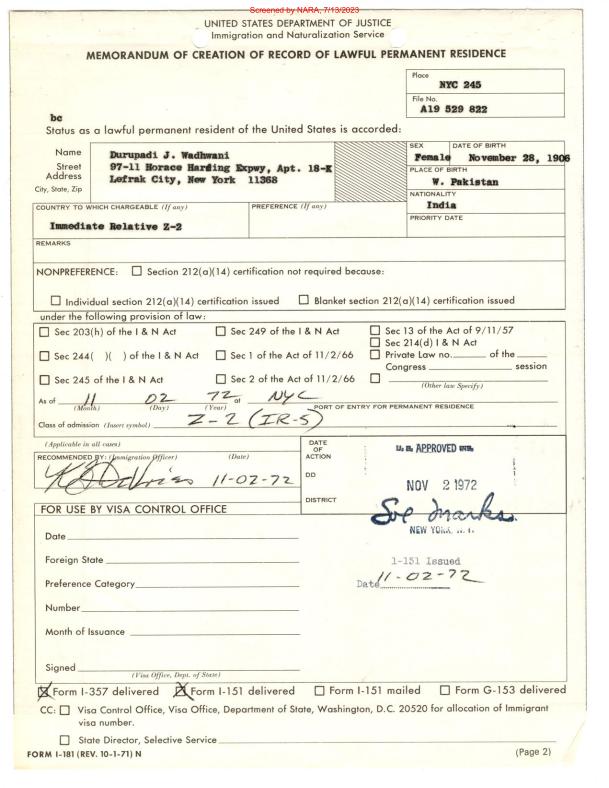 Screened by NARA, 7/13/2023
UNITED STATES DEPARTMENT OF JUSTICE
Immigration and Naturalization Service
MEMORANDUM OF CREATION OF RECORD OF LAWFUL PERMANENT RESIDENCE
Place
NYC 245
File No.
A19 529 822
bc
Status as a lawful permanent resident of the United States is accorded:
Name Durupadi J. Wadhwani
Street Address 97-11 Horace Harding Expwy, Apt. 18-K
City, State, Zip Lefrak City, New York 11368
SEX Female
DATE OF BIRTH November 28, 1906
PLACE OF BIRTH
W. Pakistan
NATIONALITY
India
COUNTRY TO WHICH CHARGEABLE (If any)
Immediate Relative Z-2
PREFERENCE (If any)
PRIORITY DATE
REMARKS
NONPREFERENCE: Section 212(a)(14) certification not required because:
Individual section 212(a)(14) certification issued Blanket section 212(a)(14) certification issued
under the following provision of law:
Sec 203(h) of the I & N Act Sec 249 of the I & N Act Sec 13 of the Act of 9/11/57
Sec 214(d) I & N Act
Sec 244( )( ) of the I & N Act Sec 1 of the Act of 11/2/66 Private Law no. of the
Congress session
Sec 245 of the I & N Act Sec 2 of the Act of 11/2/66
(Other law Specify)
As of 11 02 72 at NYC
(Month) (Day) (Year) PORT OF ENTRY FOR PERMANENT RESIDENCE
Class of admission (Insert symbol) Z-2 (IR-5)
(Applicable in all cases)
RECOMMENDED BY: (Immigration Officer) (Date)
11-02-72
DATE OF ACTION
DD
DISTRICT
APPROVED
NOV 2 1972
Sol Marks
NEW YORK, N. Y.
FOR USE BY VISA CONTROL OFFICE
Date
Foreign State
Preference Category
Number
Month of Issuance
Signed
(Visa Office, Dept. of State)
1-151 Issued
Date 11-02-72
Form I-357 delivered Form I-151 delivered Form I-151 mailed Form G-153 delivered
CC: Visa Control Office, Visa Office, Department of State, Washington, D.C. 20520 for allocation of Immigrant
visa number.
State Director, Selective Service
FORM I-181 (REV. 10-1-71) N
(Page 2)